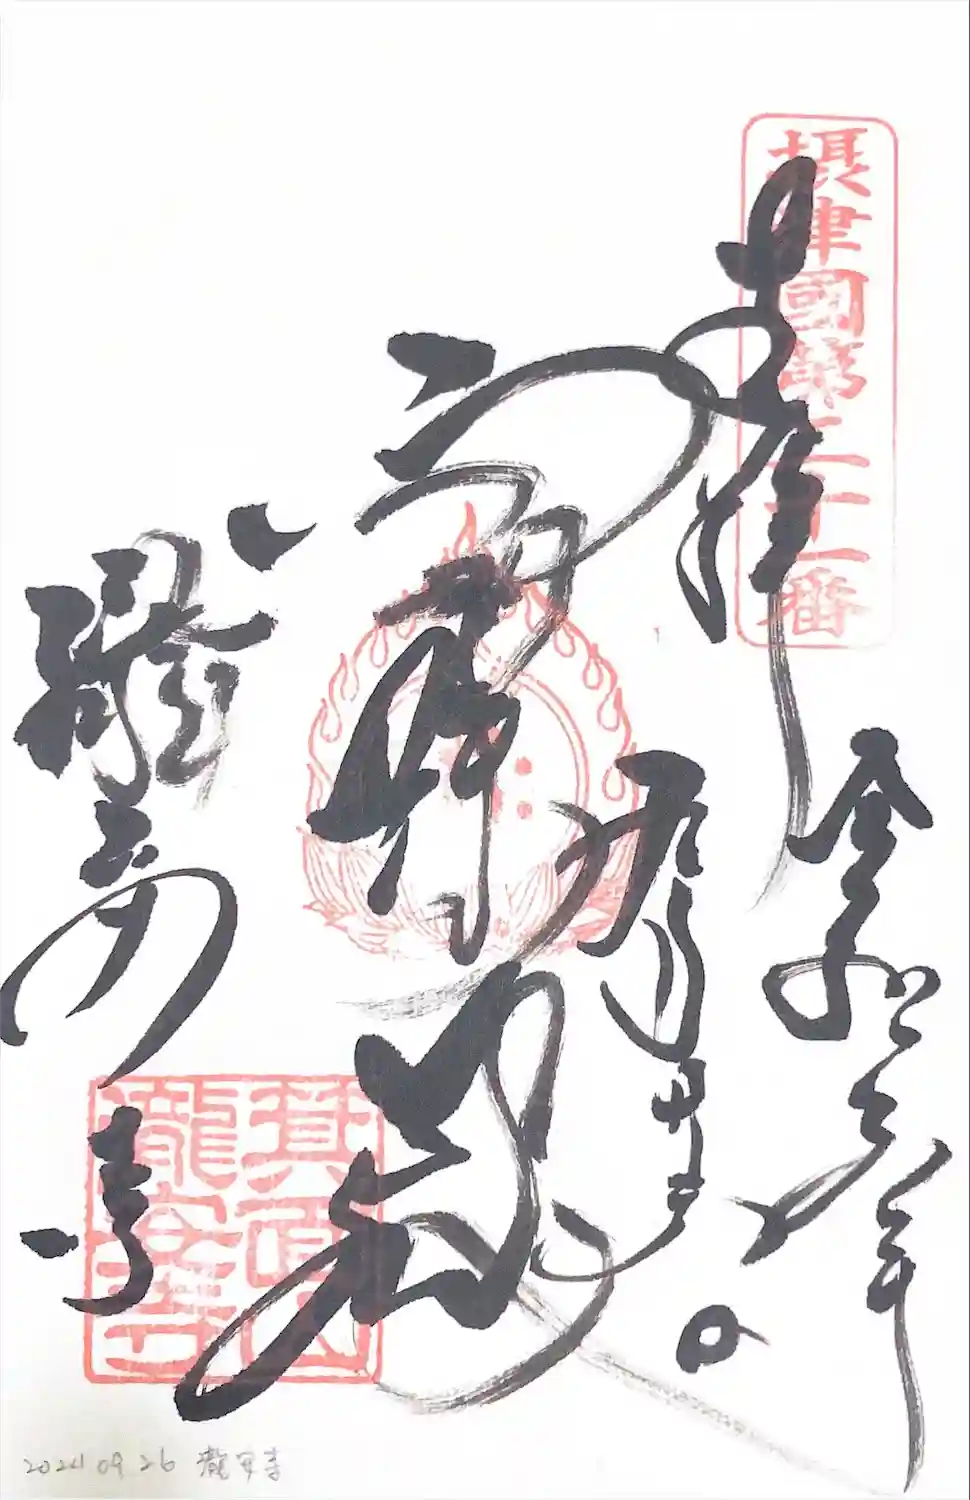 摂津國第二十一番
奉拝
令和六年
九月廿六日
弁財天
瀧安寺
箕面山瀧安寺
2024 09 26 瀧安寺